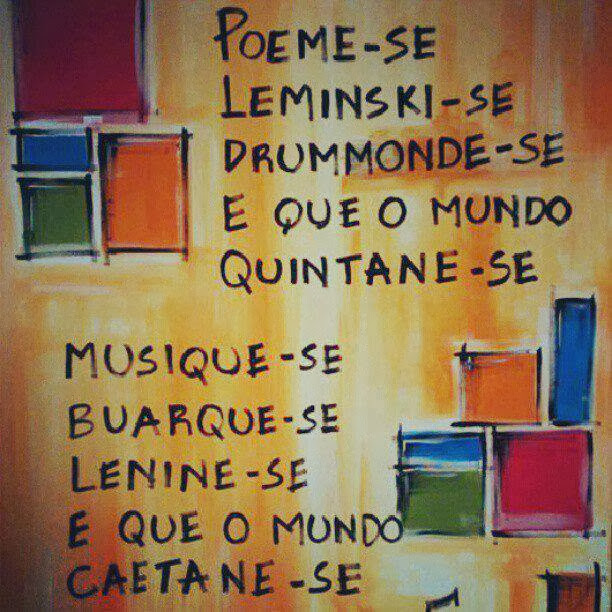 POEME-SE
LEMINSKI-SE
DRUMMONDE-SE
E QUE O MUNDO
QUINTANE-SE
MUSIQUE-SE
BUARQUE-SE
LENINE-SE
E QUE O MUNDO
CAETANE-SE